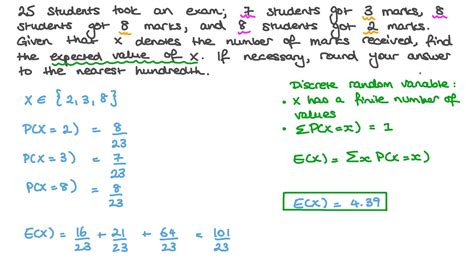 25 students took an exam; 7 students got 3 marks, 8
students got 8 marks, and 8 students got 2 marks.
Given that x denotes the number of marks received, find
the expected value of x. If necessary, round your answer
to the nearest hundredth.
X ∈ {2, 3, 8}
P(X = 2) = 8/23
P(X = 3) = 7/23
P(X = 8) = 8/23
E(X) = 16/23 + 21/23 + 64/23 = 101/23
Discrete random variable:
• X has a finite number of
values
• ΣP(X=x) = 1
E(X) = Σx P(X=x)
E(X) = 4.39